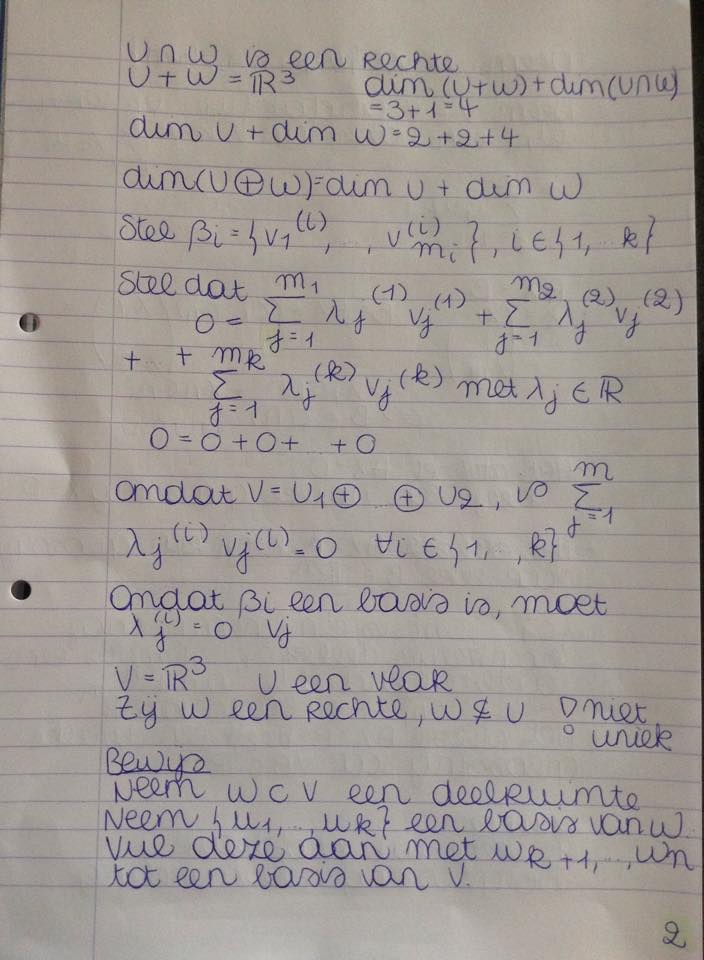 U ∩ W is een rechte
U + W = ℝ³ dim (U+W) + dim(U∩W)
= 3+1 = 4
dim U + dim W = 2+2+4
dim(U⊕W) = dim U + dim W
Stel βi = {v1^(i), .., v_mi^(i)}, i ∈ {1, .. k}
Stel dat 0 = Σ_{j=1}^{m1} λj^(1) vj^(1) + Σ_{j=1}^{m2} λj^(2) vj^(2)
+ .. + Σ_{j=1}^{mk} λj^(k) vj^(k) met λj ∈ ℝ
0 = 0 + 0 + .. + 0
Omdat V = U1 ⊕ ⊕ U2, is Σ_{j=1}^{m}
λj^(i) vj^(i) = 0 ∀i ∈ {1, .., k}
Omdat βi een basis is, moet
λj^(i) = 0 Vj
V = ℝ³ U een vlak
Zij W een rechte, W ⊄ U ! niet
uniek
Bewijs
Neem W ⊂ V een deelruimte
Neem {u1, .., uk} een basis van W.
Vul deze aan met wk+1, .., wn
tot een basis van V.
2